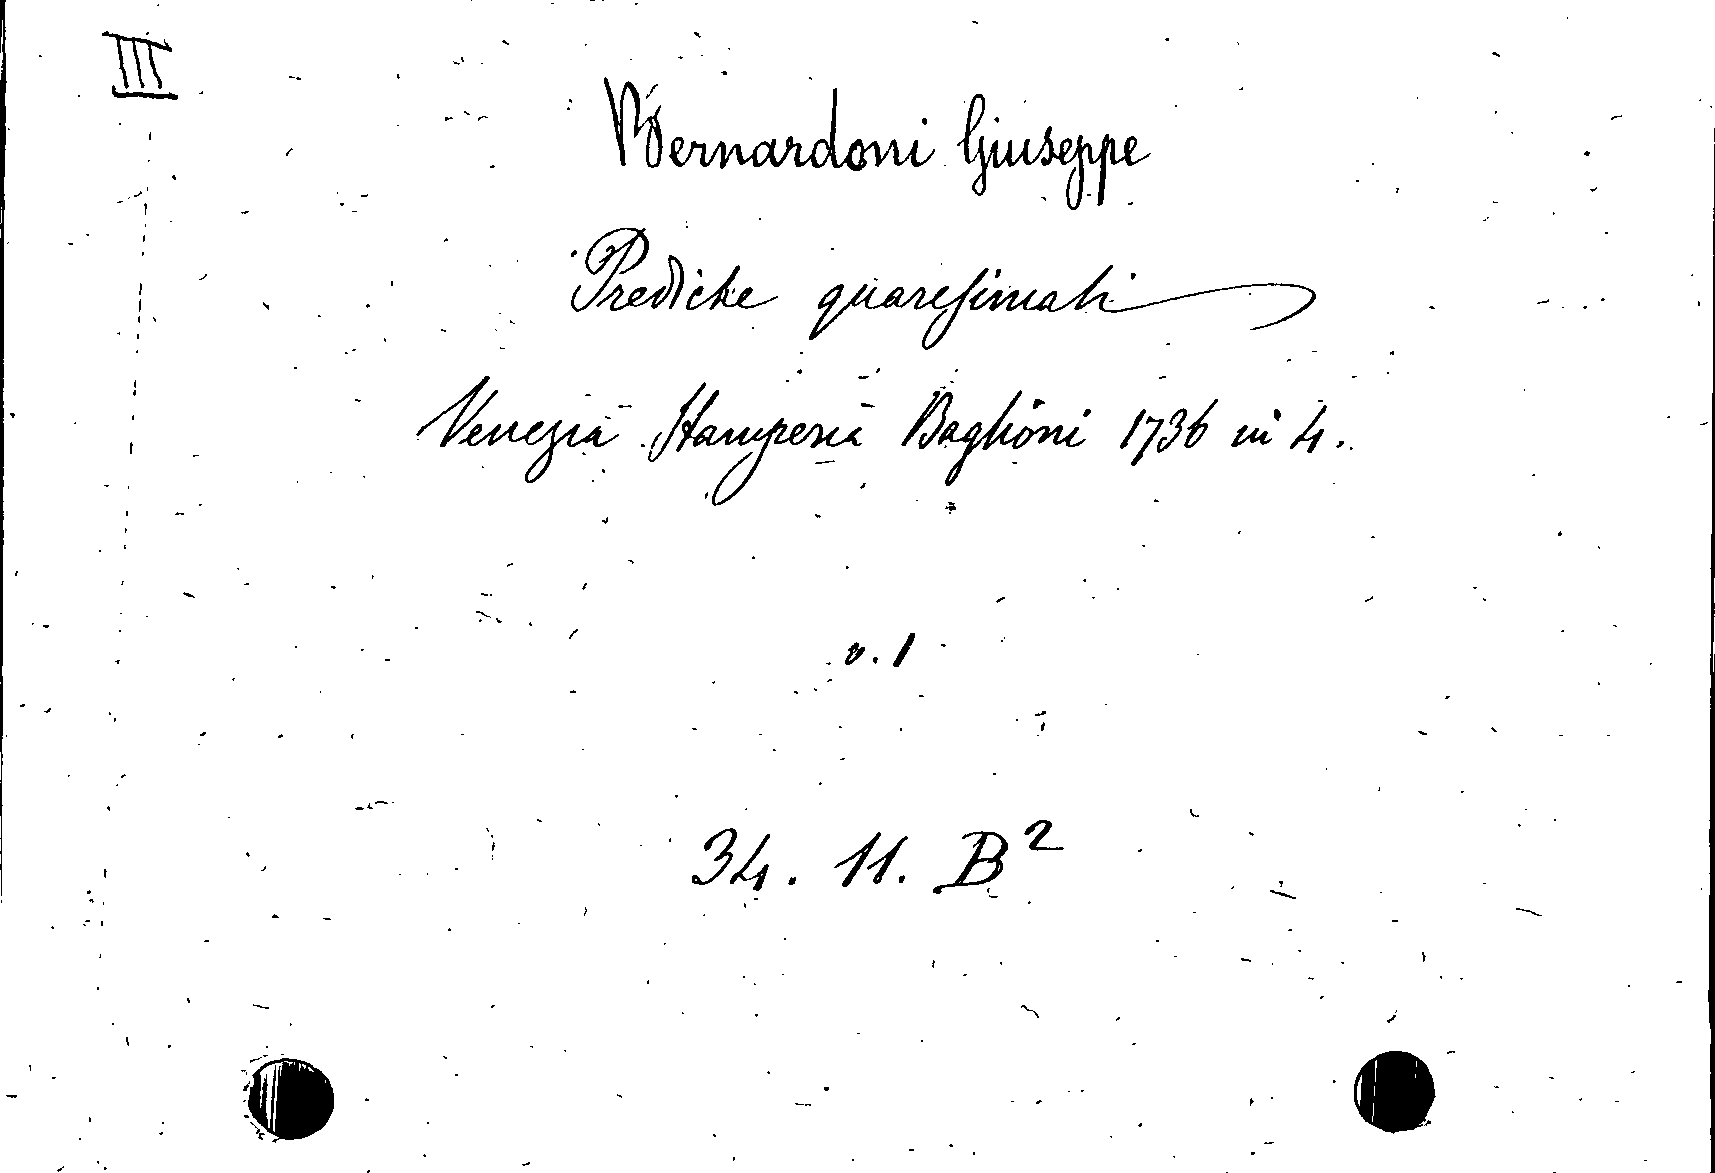 III
Bernardoni Giuseppe
Prediche quaresimali
Venezia Stamperia Baglioni 1736 in 4.
v. 1
34. 11. B²